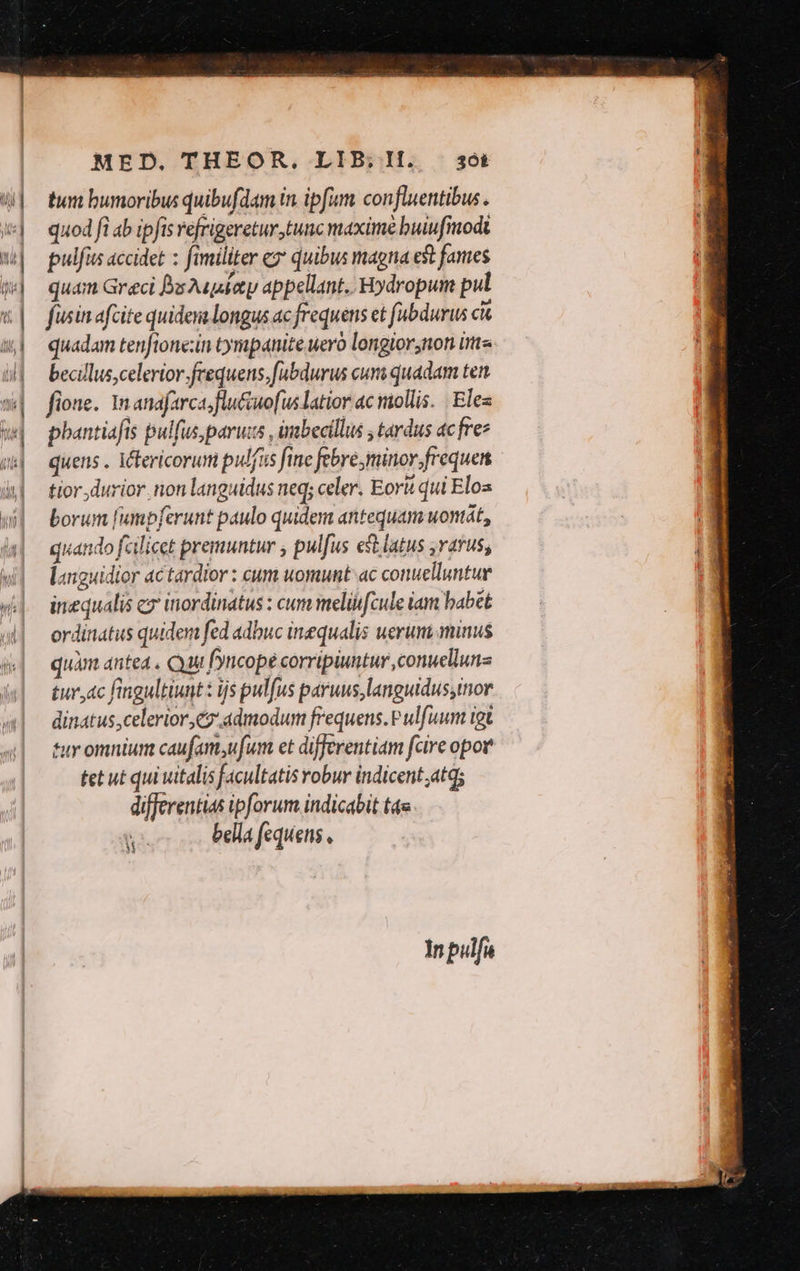 MED. THEOR. LIB. II. 301
tum humoribus quibuſdam in ipſum confluentibus.
quod ſi ab ipſis refrigeretur, tunc maximè huiuſmodi
pulſus accidet : ſimiliter & quibus magna est fames
quam Græci βȣλιμίαν appellant. Hydropum pul
ſus in aſcite quidem longus ac frequens et ſubdurus cū
quadam tenſione: in tympanite uerò longior, non im-
becillus, celerior, frequens, ſubdurus cum quadam ten
ſione. In anaſarca, fluctuoſus latior ac mollis. Ele-
phantiaſis pulſus, paruus, imbecillus, tardus ac fre-
quens. Ictericorum pulſus ſine febre, minor, frequen
tior, durior, non languidus neq; celer. Eorū qui Ela-
borum ſumpſerunt paulo quidem antequam uomāt,
quando ſcilicet premuntur, pulſus est latus, rarus,
languidior ac tardior : cum uomunt ac conuelluntur
inæqualis & inordinatus : cum meliuſcule iam habēt
ordinatus quidem ſed adhuc inæqualis uerum minus
quàm antea. Qui ſyncopé corripiuntur, conuellun-
tur, ac ſingultiunt : ijs pulſus paruus, languidus, inor
dinatus, celerior, & admodum frequens. Pulſuum igi
tur omnium cauſam, uſum et differentiam ſcire opor
tet ut qui uitalis facultatis robur indicent, atq;
differentias ipſorum indicabit ta-
bella ſequens.
In pulſu